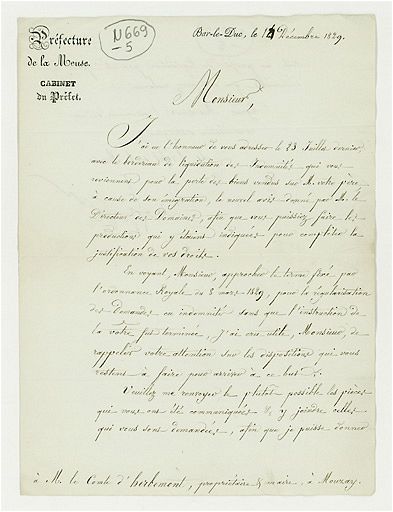 Préfecture
de la Meuse.
CABINET
du Préfet.
N669
-5
Bar-le-Duc, le 14 Décembre 1829.
Monsieur,
J'ai eu l'honneur de vous adresser le 23 Juillet dernier,
avec le bordereau de liquidation des Indemnités qui vous
reviennent pour la perte des biens vendus sur M. votre père
à cause de son émigration, le nouvel avis donné par M. le
Directeur des Domaines, afin que vous puissiez faire les
productions qui y étaient indiquées pour compléter la
justification de vos droits.
En voyant, Monsieur, approcher le terme fixé par
l'ordonnance Royale du 8 mars 1829, pour la régularisation
des Demandes en indemnité sans que l'instruction de
la votre fut terminée, j'ai cru utile, Monsieur, de
rappeler votre attention sur les dispositions que vous
restent à faire pour arriver à ce but.
Veuillez me renvoyer le plutôt possible les pièces
qui vous ont été communiquées &, y joindre celles
qui vous sont demandées, afin que je puisse donner
à M. le Comte d'herbemont, propriétaire & maire, à Mouzay.